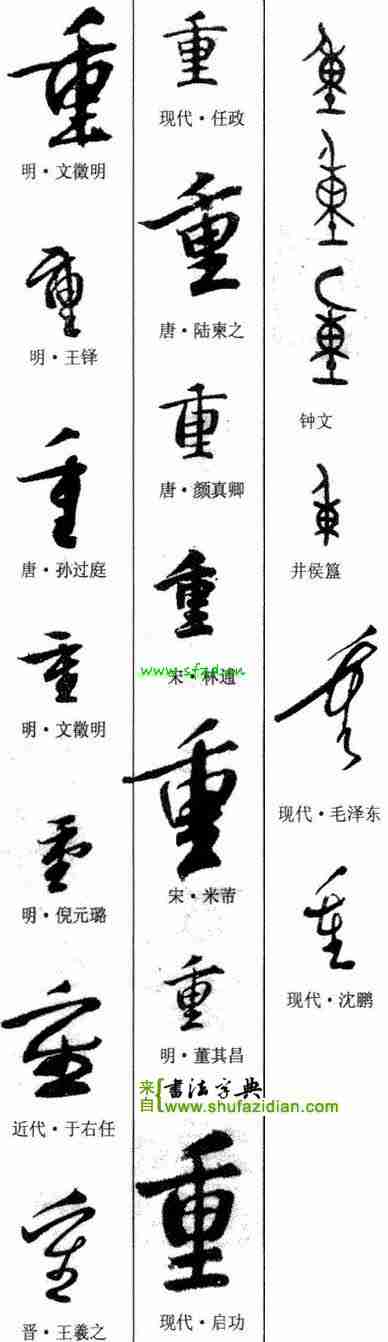 重
明·文徵明
重
明·王铎
重
唐·孙过庭
重
明·文徵明
重
明·倪元璐
重
近代·于右任
重
晋·王羲之
重
现代·任政
重
唐·陆柬之
重
唐·颜真卿
重
宋·林逋
www.sfzd.cn
重
宋·米芾
重
明·董其昌
来自{书法字典
www.shufazidian.com
重
现代·启功
重
重
重
钟文
重
井侯簋
重
现代·毛泽东
重
现代·沈鹏